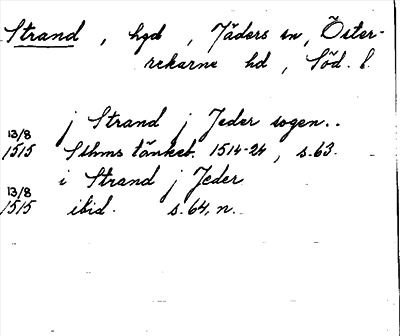 Strand, hgd, Jäders sn, Öster-
rekarne hd, Söd. l.
j Strand j Jeder sogen..
13/8
1515 Sthms tänkeb. 1514-24, s. 63.
i Strand j Jeder
13/8
1515 ibid. s. 64, n.